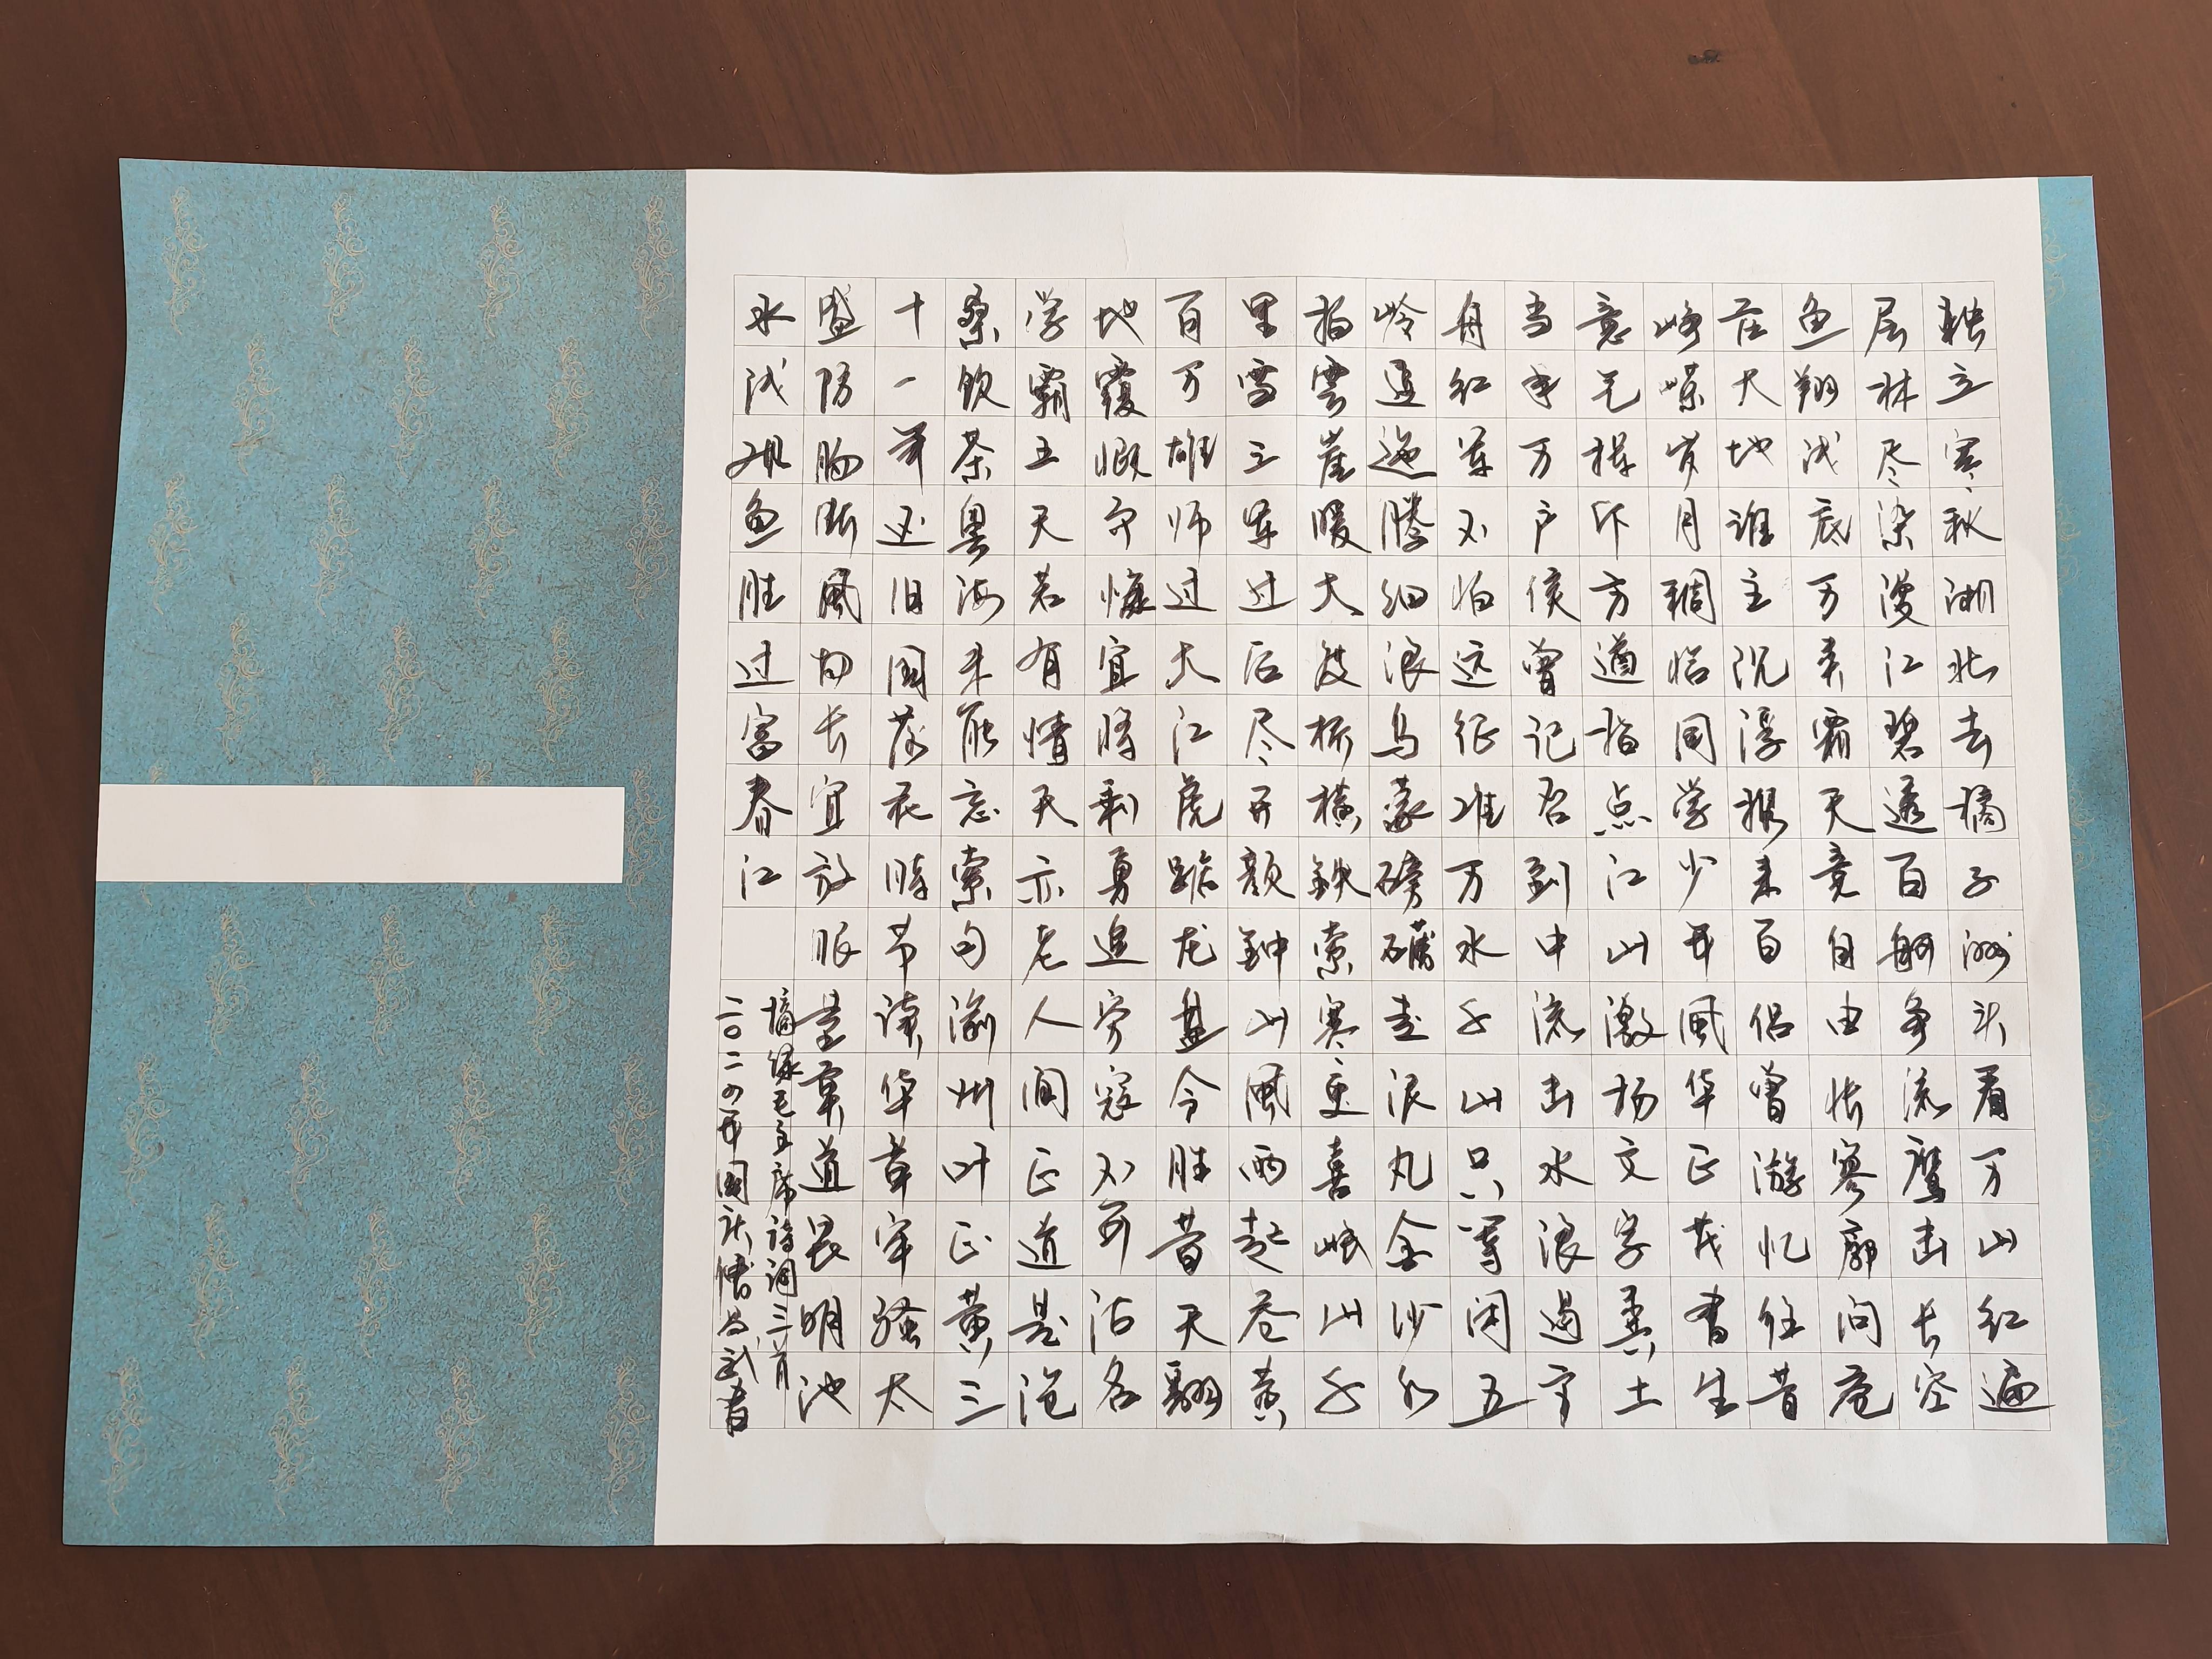 独立寒秋湘北去橘子洲头看万山红遍
层林尽染漫江碧透百舸争流鹰击长空
鱼翔浅底万类霜天竞自由怅寥廓问苍
茫大地谁主沉浮携来百侣曾游忆往昔
峥嵘岁月稠恰同学少年风华正茂书生
意气挥斥方遒指点江山激扬文字粪土
当年万户侯曾记否到中流击水浪遏飞
舟红军不怕远征难万水千山只等闲五
岭逶迤腾细浪乌蒙磅礴走泥丸金沙水
拍雲崖暖大渡桥横鉄索寒更喜岷山千
里雪三军过后尽开颜钟山风雨起苍黄
百万雄师过大江虎踞龙盘今胜昔天翻
地覆慨而慷宜将剩勇追穷寇不可沽名
学霸王天若有情天亦老人间正道是沧
桑饮茶粤海未能忘索句渝州叶正黄三
十一年还旧国落花时节读华章牢骚太
盛防肠断風物长宜放眼量莫道昆明池
水浅观鱼胜过富春江
摘录毛主席诗词三首
二〇二四年国庆书